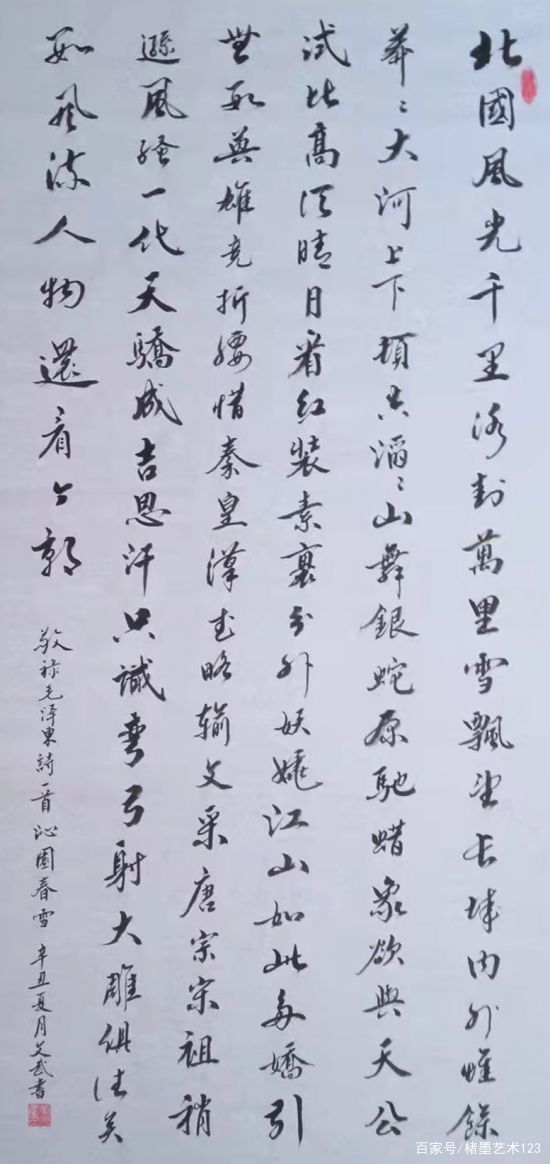 北國風光千里冰封萬里雪飄望长城内外惟餘
莽〻大河上下頓失滔〻山舞銀蛇原馳蜡象欲與天公
試比高须晴日看红裝素裹分外妖娆江山如此多嬌引
無數英雄竞折腰惜秦皇漢武略输文采唐宗宋祖稍
遜風騷一代天驕成吉思汗只識彎弓射大雕俱往矣
數風流人物還看今朝
敬禄毛泽東詩一首沁園春雪 辛丑夏月文武書
百家号/楮墨艺术123